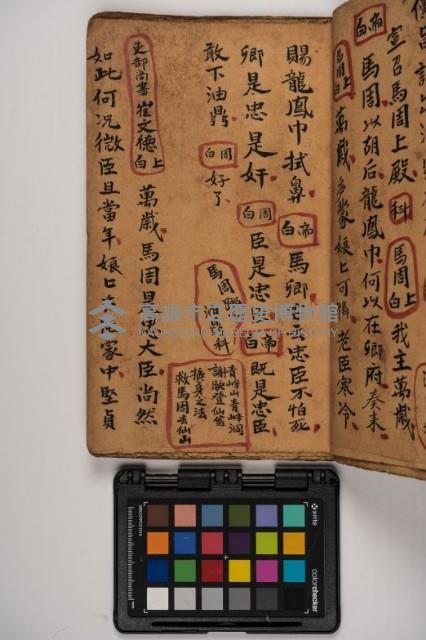 帝白
宣召馬周上殿 科 馬周上白 我主萬歲
馬周以胡后龍鳳巾何以在卿府奏來
馬周上白 萬歲 多蒙娘上可憐 老臣寒冷
賜龍鳳巾拭鼻 帝白 馬卿 忠臣不怕死
卿是忠是奸 周白 臣是忠 帝白 既是忠臣
敢下油鼎 周白 好了 馬周 科
青峰山青峰洞
謝映登仙翁
換身之法
救馬周去仙山
吏部尚書崔文德上白 萬歲馬周是 大臣尚然
如此何况微臣且當年娘上 家中堅貞
高雄市立歷史博物館
x-rite
colorchecker